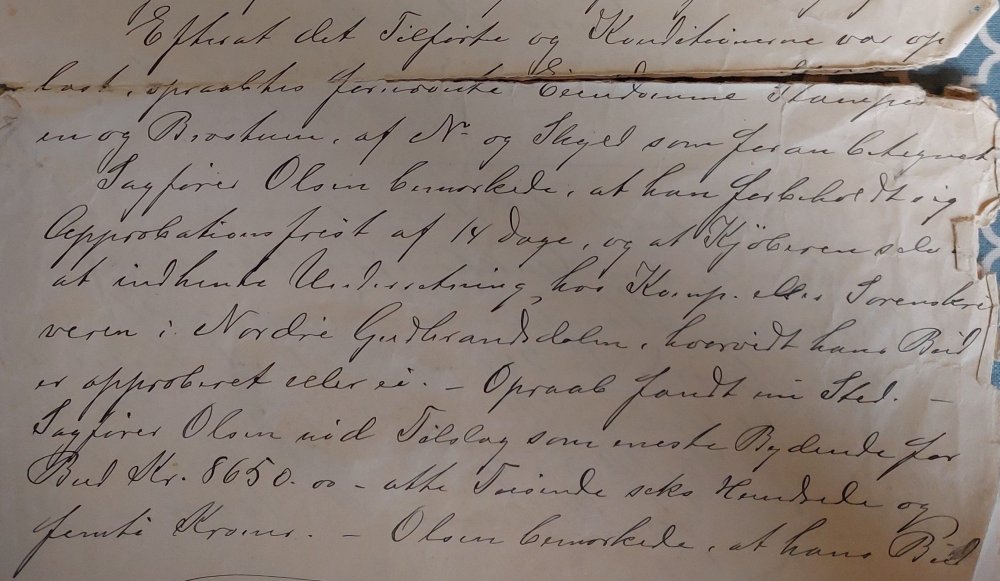 Efterat det Tilførte og Konditionerne var op
læst, opraabtes fornævnte Eiendomme Stamper
en og Brostuen, af No og Skyld som foran betegnet
Sagfører Olsen bemærkede, at han forbeholdt sig
Approbationsfrist af 14 Dage, og at Kjøberen selv
at indhente Underretning hos Komp. eller Sorenskri
veren i Nordre Gudbrandsdalen, hvorvidt hans Bud
er approberet eller ei. – Opraab fandt nu Sted. –
Sagfører Olsen ved Tilslag som eneste Bydende for
Bud Kr. 8650.00 – otte Tusinde seks Hundrede og
femti Kroner. – Olsen bemærkede, at hans Bud